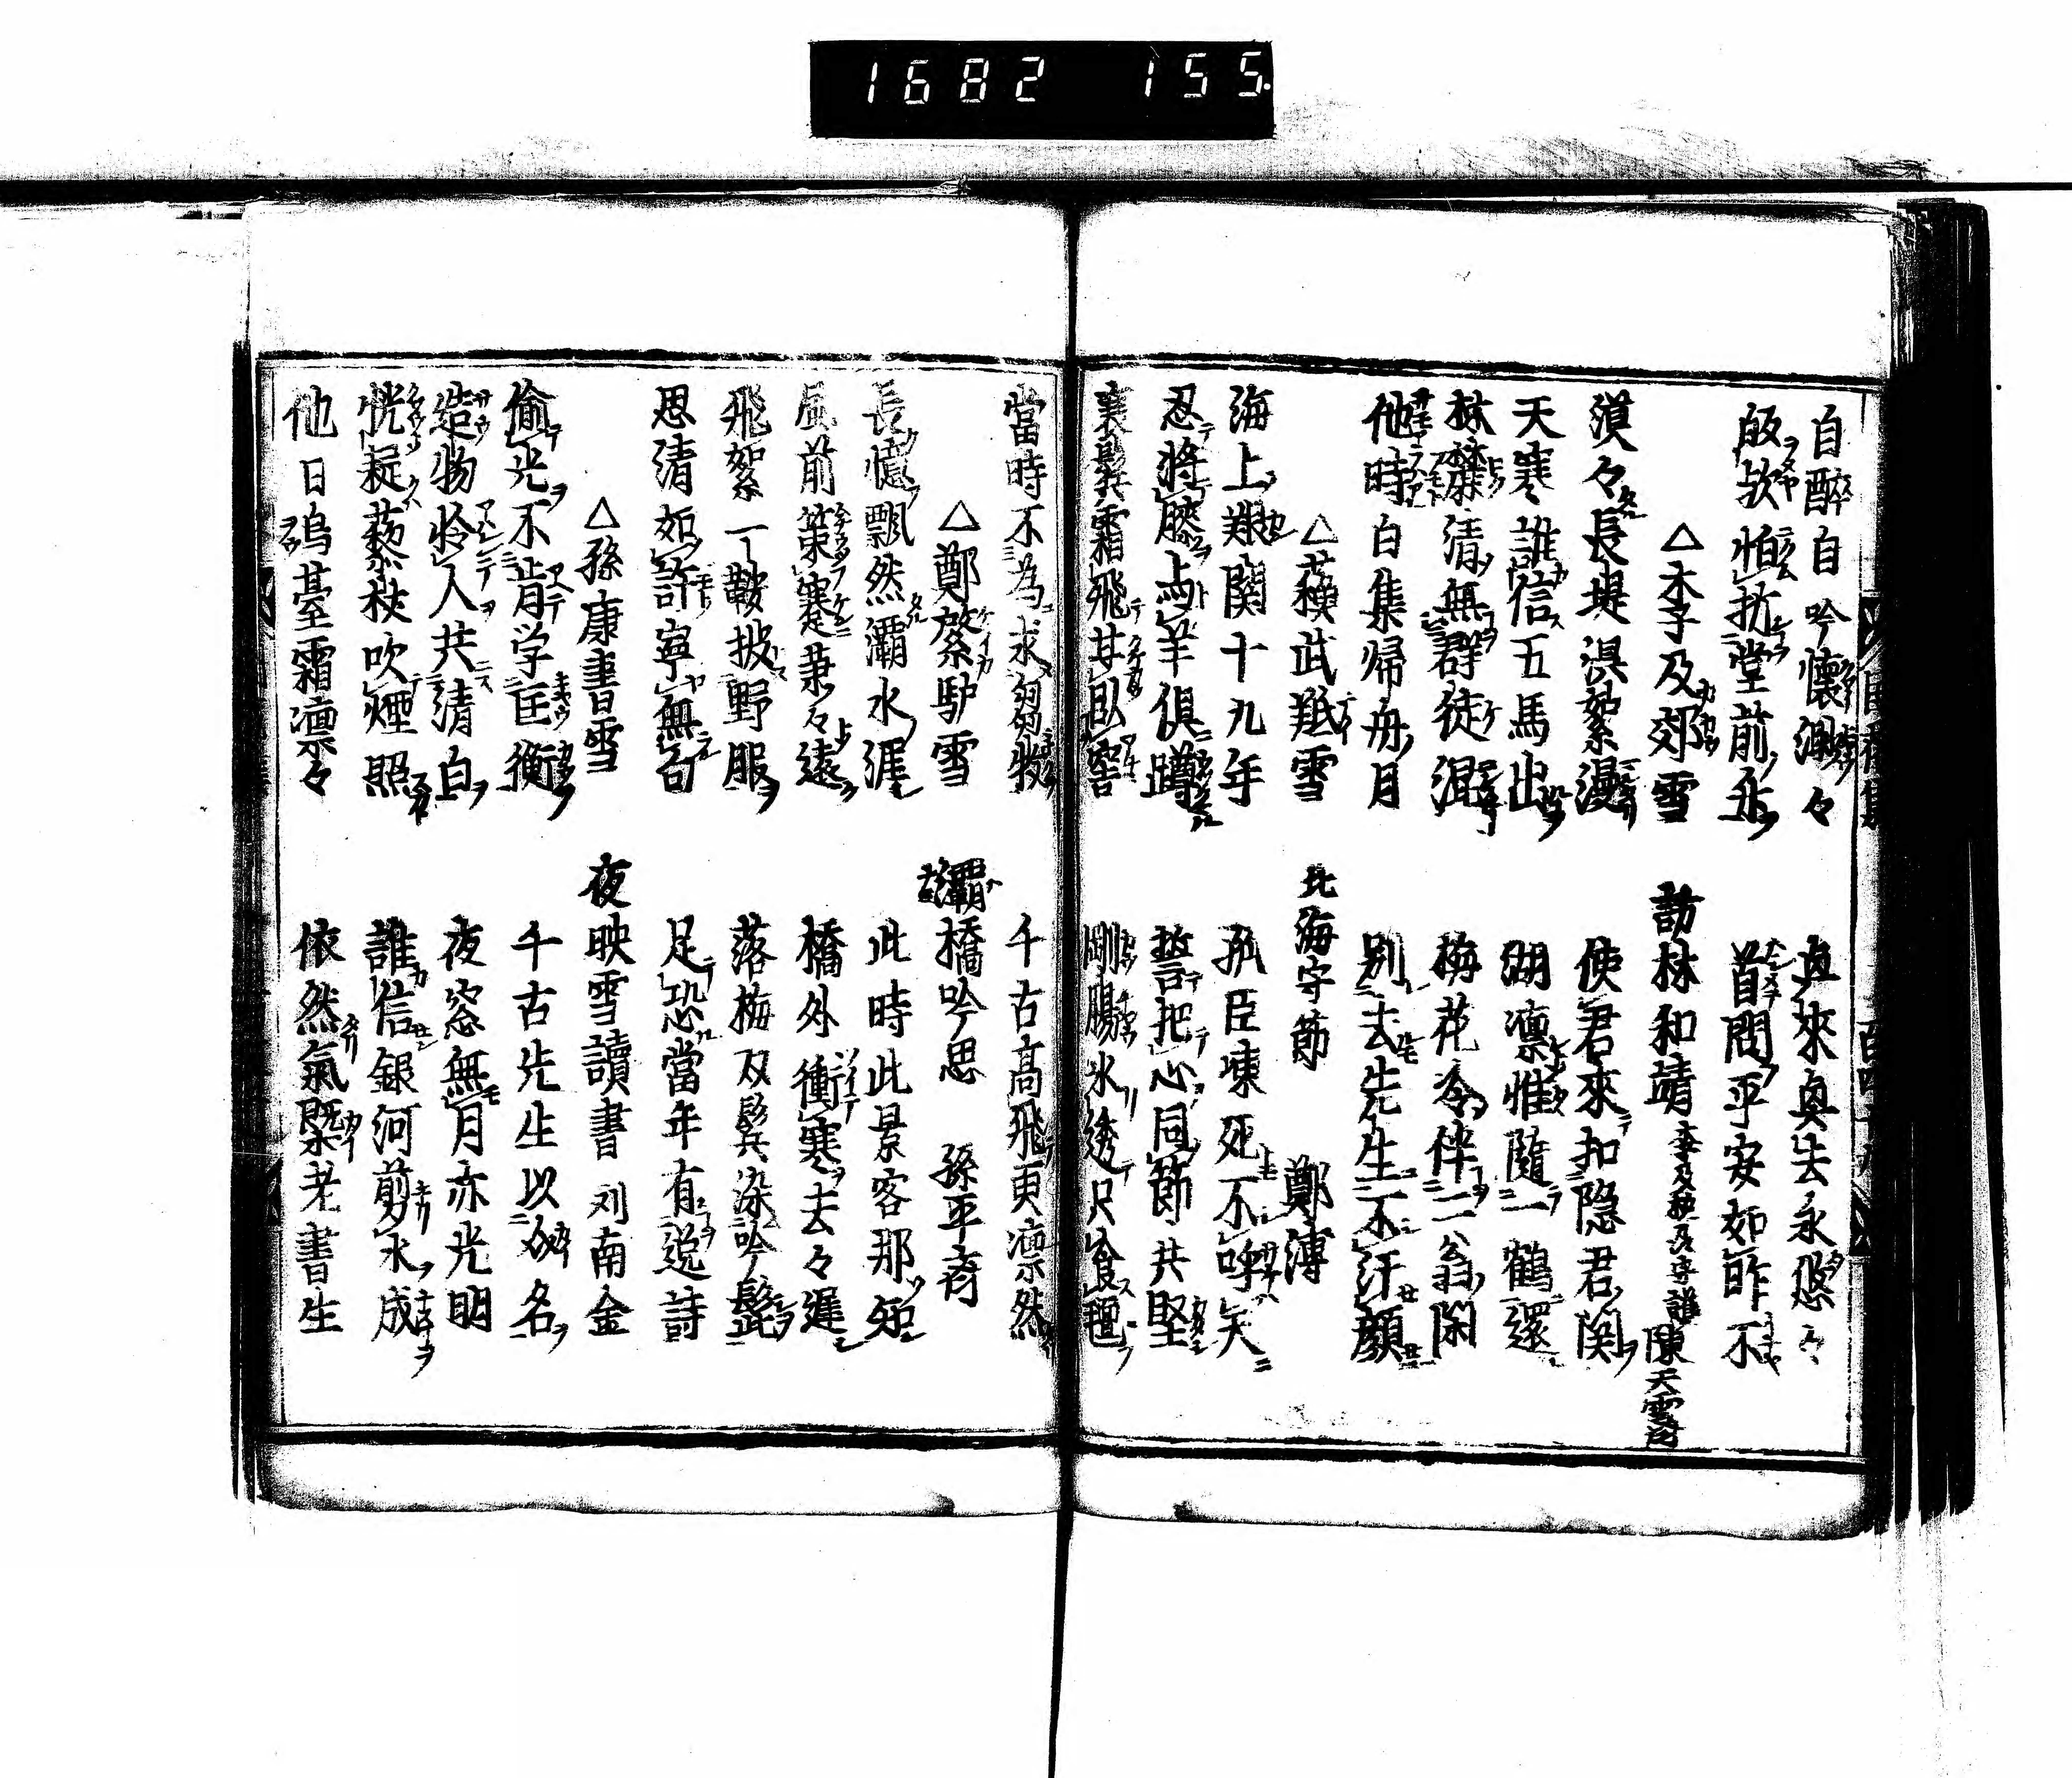 1682 155
自醉自吟懷渺々 真來真去永悠々
皈欤怕扵堂前永 首問平安如昨不
△李及郊雪 訪林和靖 陳天雲
漠々長堤混絮漫 使君來扣隐君関
天寒誰信五馬出 湖凛惟隨一鶴還
林禁清無群徒混 梅花冷伴二翁閑
他時白集帰舟月 別去先生不汗顔
△蘓武羝雪 北海守節 鄭溥
海上艱関十九年 孤臣凍死不呼天
忍將膝与羊俱蹲 誓把心同節共堅
衰鬢霜飛甘臥窖 剛腸氷透只食氊
當時不為求芻牧 千古高飛更凛然
△鄭綮馿雪 灞橋吟思 孫平斎
長憶飄然灞水涯 此時此景客那知
風前策蹇兼々遠 橋外衝寒去々遲
飛絮一鞍披野服 落梅双鬢染吟髭
思清如許寧無句 足恐當年有逸詩
△孫康書雪 夜映雪讀書 刘南金
偷光不肯学匡衡 千古先生以効名
造物怜人共清白 夜窓無月亦光明
恍疑藜杖吹煙照 誰信銀河剪水成
他日烏臺霜凛々 依然氣槩老書生